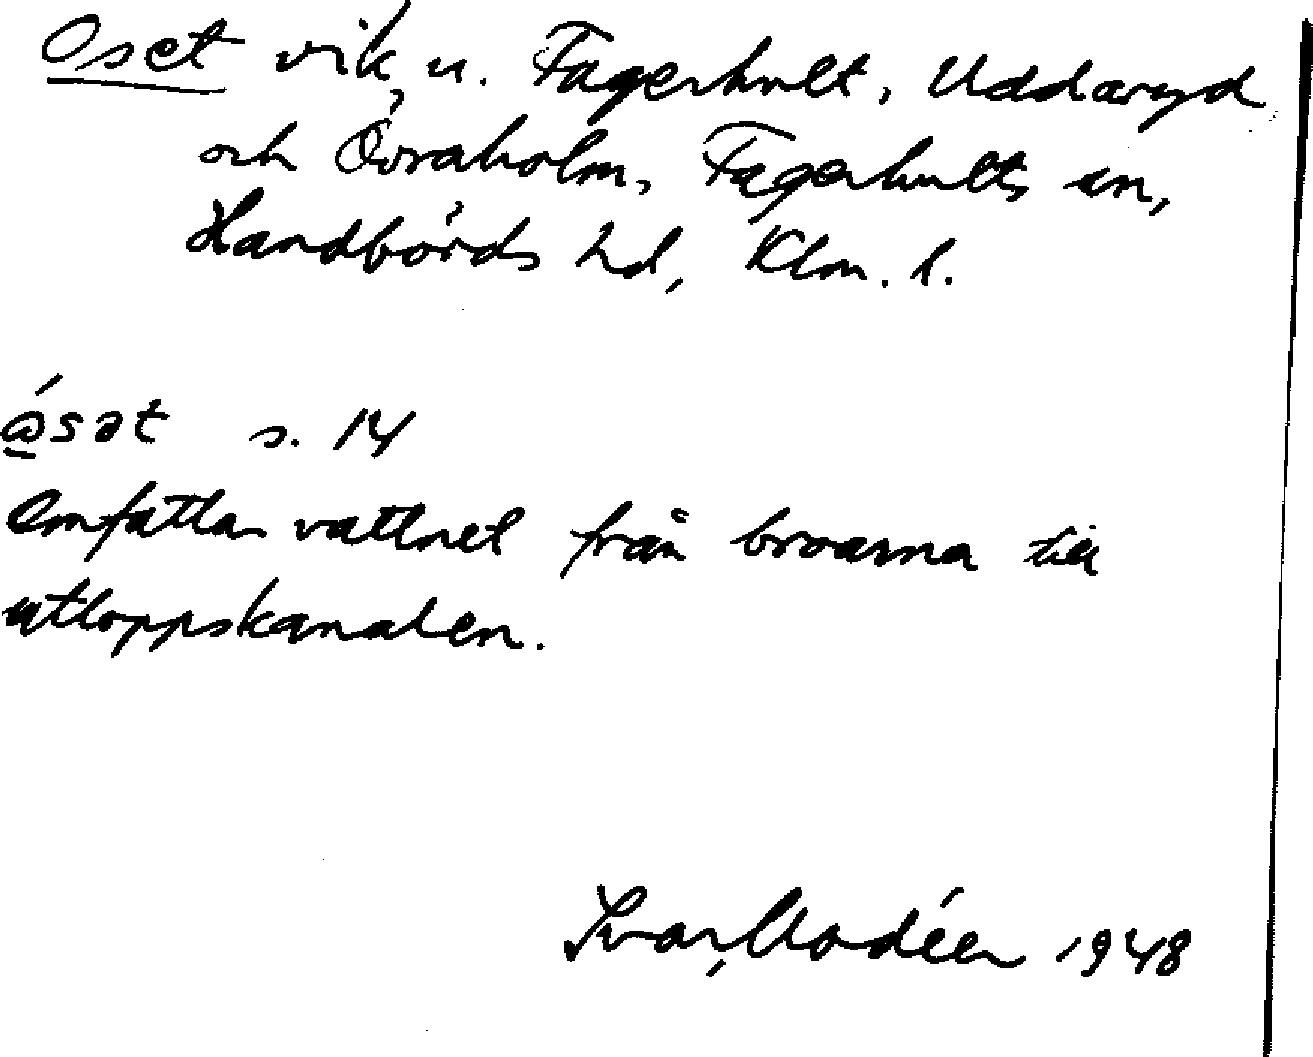 Oset vik, u. Fagerhult, Uddaryd
och Övraholm, Fagerhults sn,
Handbörds hd, Klm. l.
ósət s. 14
Omfattar vattnet från broarna till
utloppskanalen.
Ivar Modéer 1948